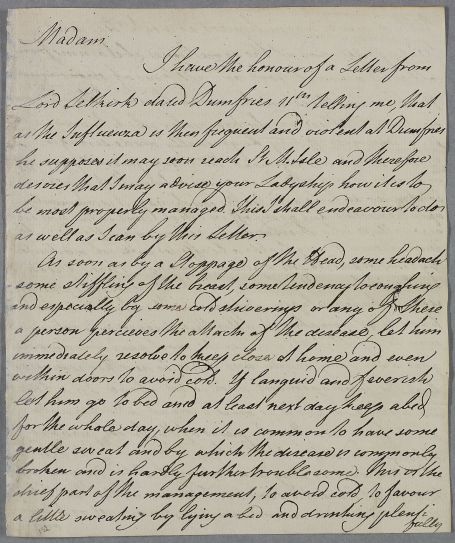 Madam
I have the honour of a Letter from
Lord Selkirk dated Dumfries 11th telling me, that
as the Influenza is then frequent and violent at Dumfries
he supposes it may soon reach St. M. Isle and therefore
desires that I may advise your Ladyship how it is to
be most properly managed. This I shall endeavour to do
as well as I can by this Letter.
As soon as by a Stoppage of the Head, some headach
some stiffling of the breast, some tendency to coughing
and especially by some cold shiverings or any of these
a person percieves the attack of the disease, let him
immediately resolve to keep close at home and even
within doors to avoid cold. If languid and feverish
let him go to bed and at least next day keep abed
for the whole day, when it is common to have some
gentle sweat and by which the disease is commonly
broken and is hardly further troublesome. This is the
chief part of the management, to avoid cold to favour
a little sweating by lying a bed and drinking plenti
fully